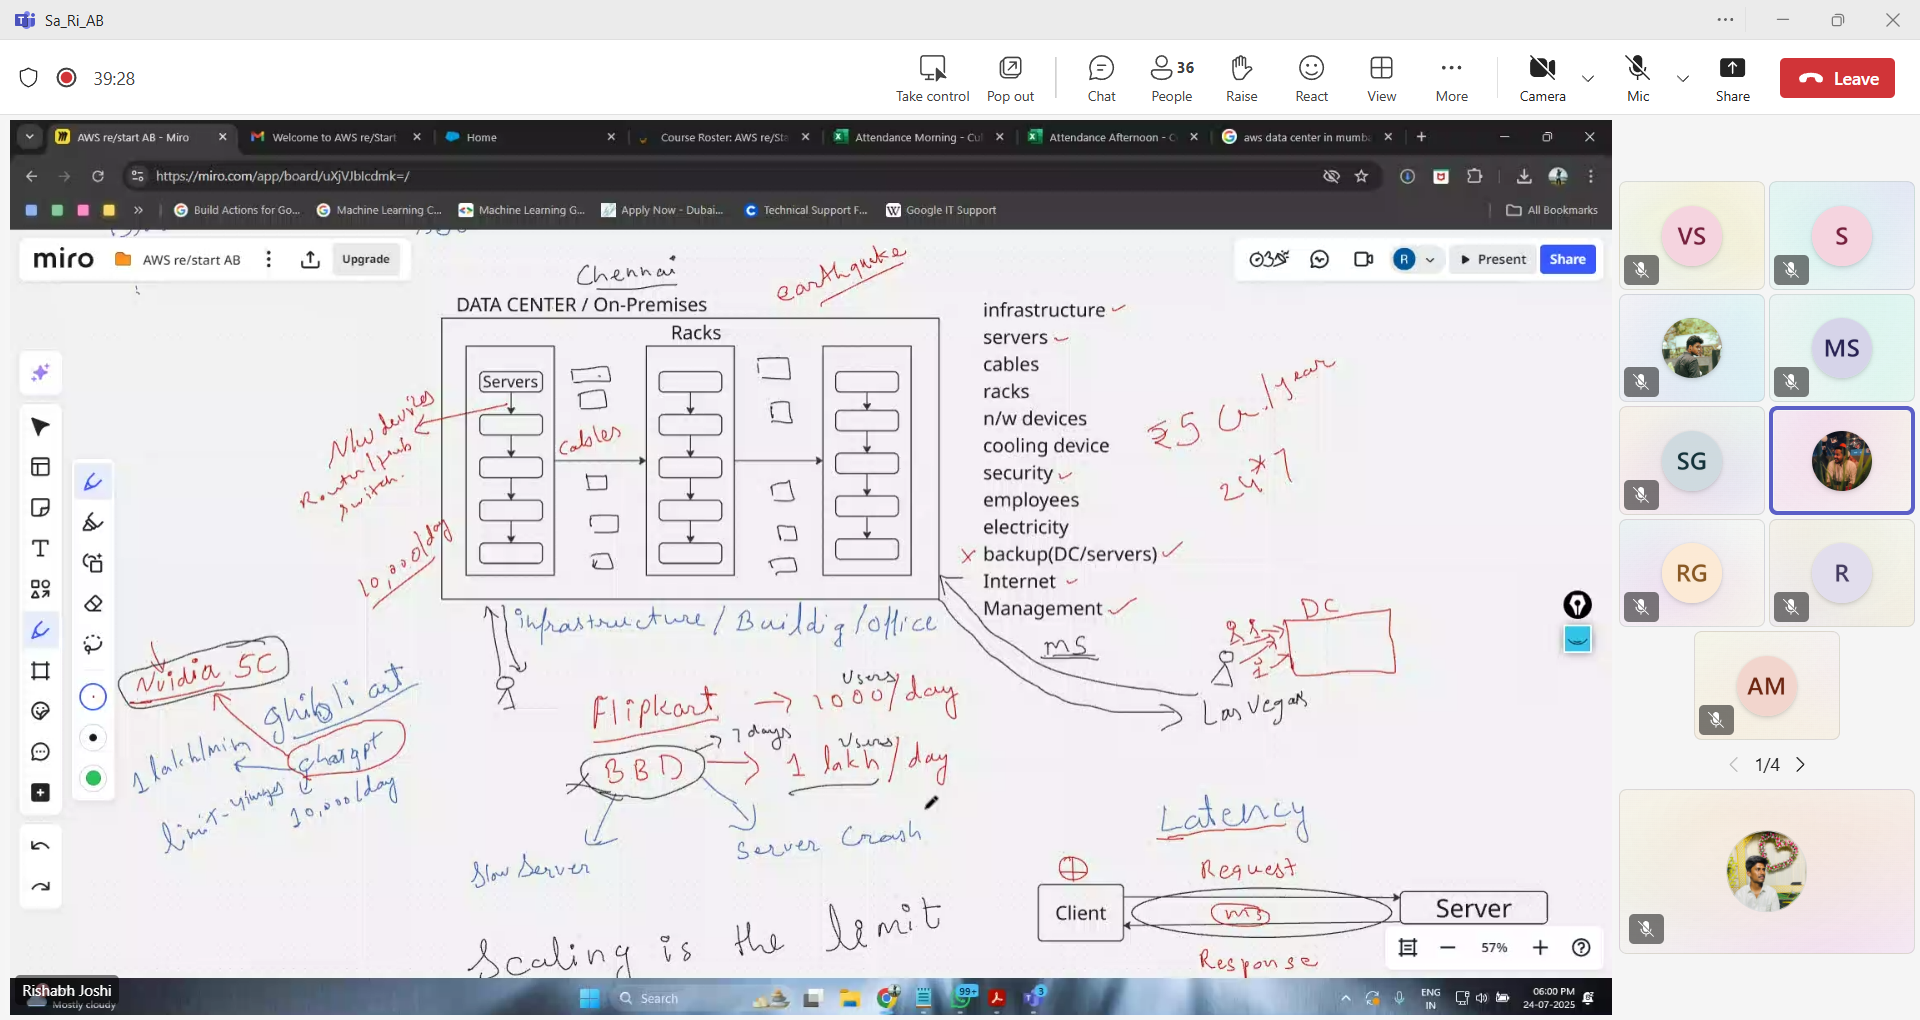 Sa_Ri_AB
39:28
Take control
Pop out
Chat
36
People
Raise
React
View
More
Camera
Mic
Share
Leave
AWS re/start AB - Miro
Welcome to AWS re/Start
Home
Course Roster: AWS re/Sta
Attendance Morning - Cu
Attendance Afternoon - C
aws data center in mumb
https://miro.com/app/board/uXjVJbIcdmk=/
Build Actions for Go...
Machine Learning C...
Machine Learning G...
Apply Now - Dubai...
Technical Support F...
Google IT Support
All Bookmarks
miro
AWS re/start AB
Upgrade
R
Present
Share
Chennai
earthquake
DATA CENTER / On-Premises
Racks
Servers
cables
N/w devices
switch.
10,000/day
infrastructure
servers
cables
racks
n/w devices
cooling device
security
employees
electricity
backup(DC/servers)
Internet
Management
ms
₹5 Cr./year
24*7
DC
Las Vegas
infrastructure / Buildig / office
Nvidia SC
ghibli art
chatgpt
1 lakh/min
10,000/day
Flipkart → 1000 users/day
7 days
BBD → 1 lakh users/day
Slow Server
Server Crash
Scaling is the limit
Latency
Request
Client
ms
Server
Response
57%
VS
S
MS
SG
RG
R
AM
1/4
Rishabh Joshi
Mostly cloudy
Search
99+
3
ENG
IN
06:00 PM
24-07-2025